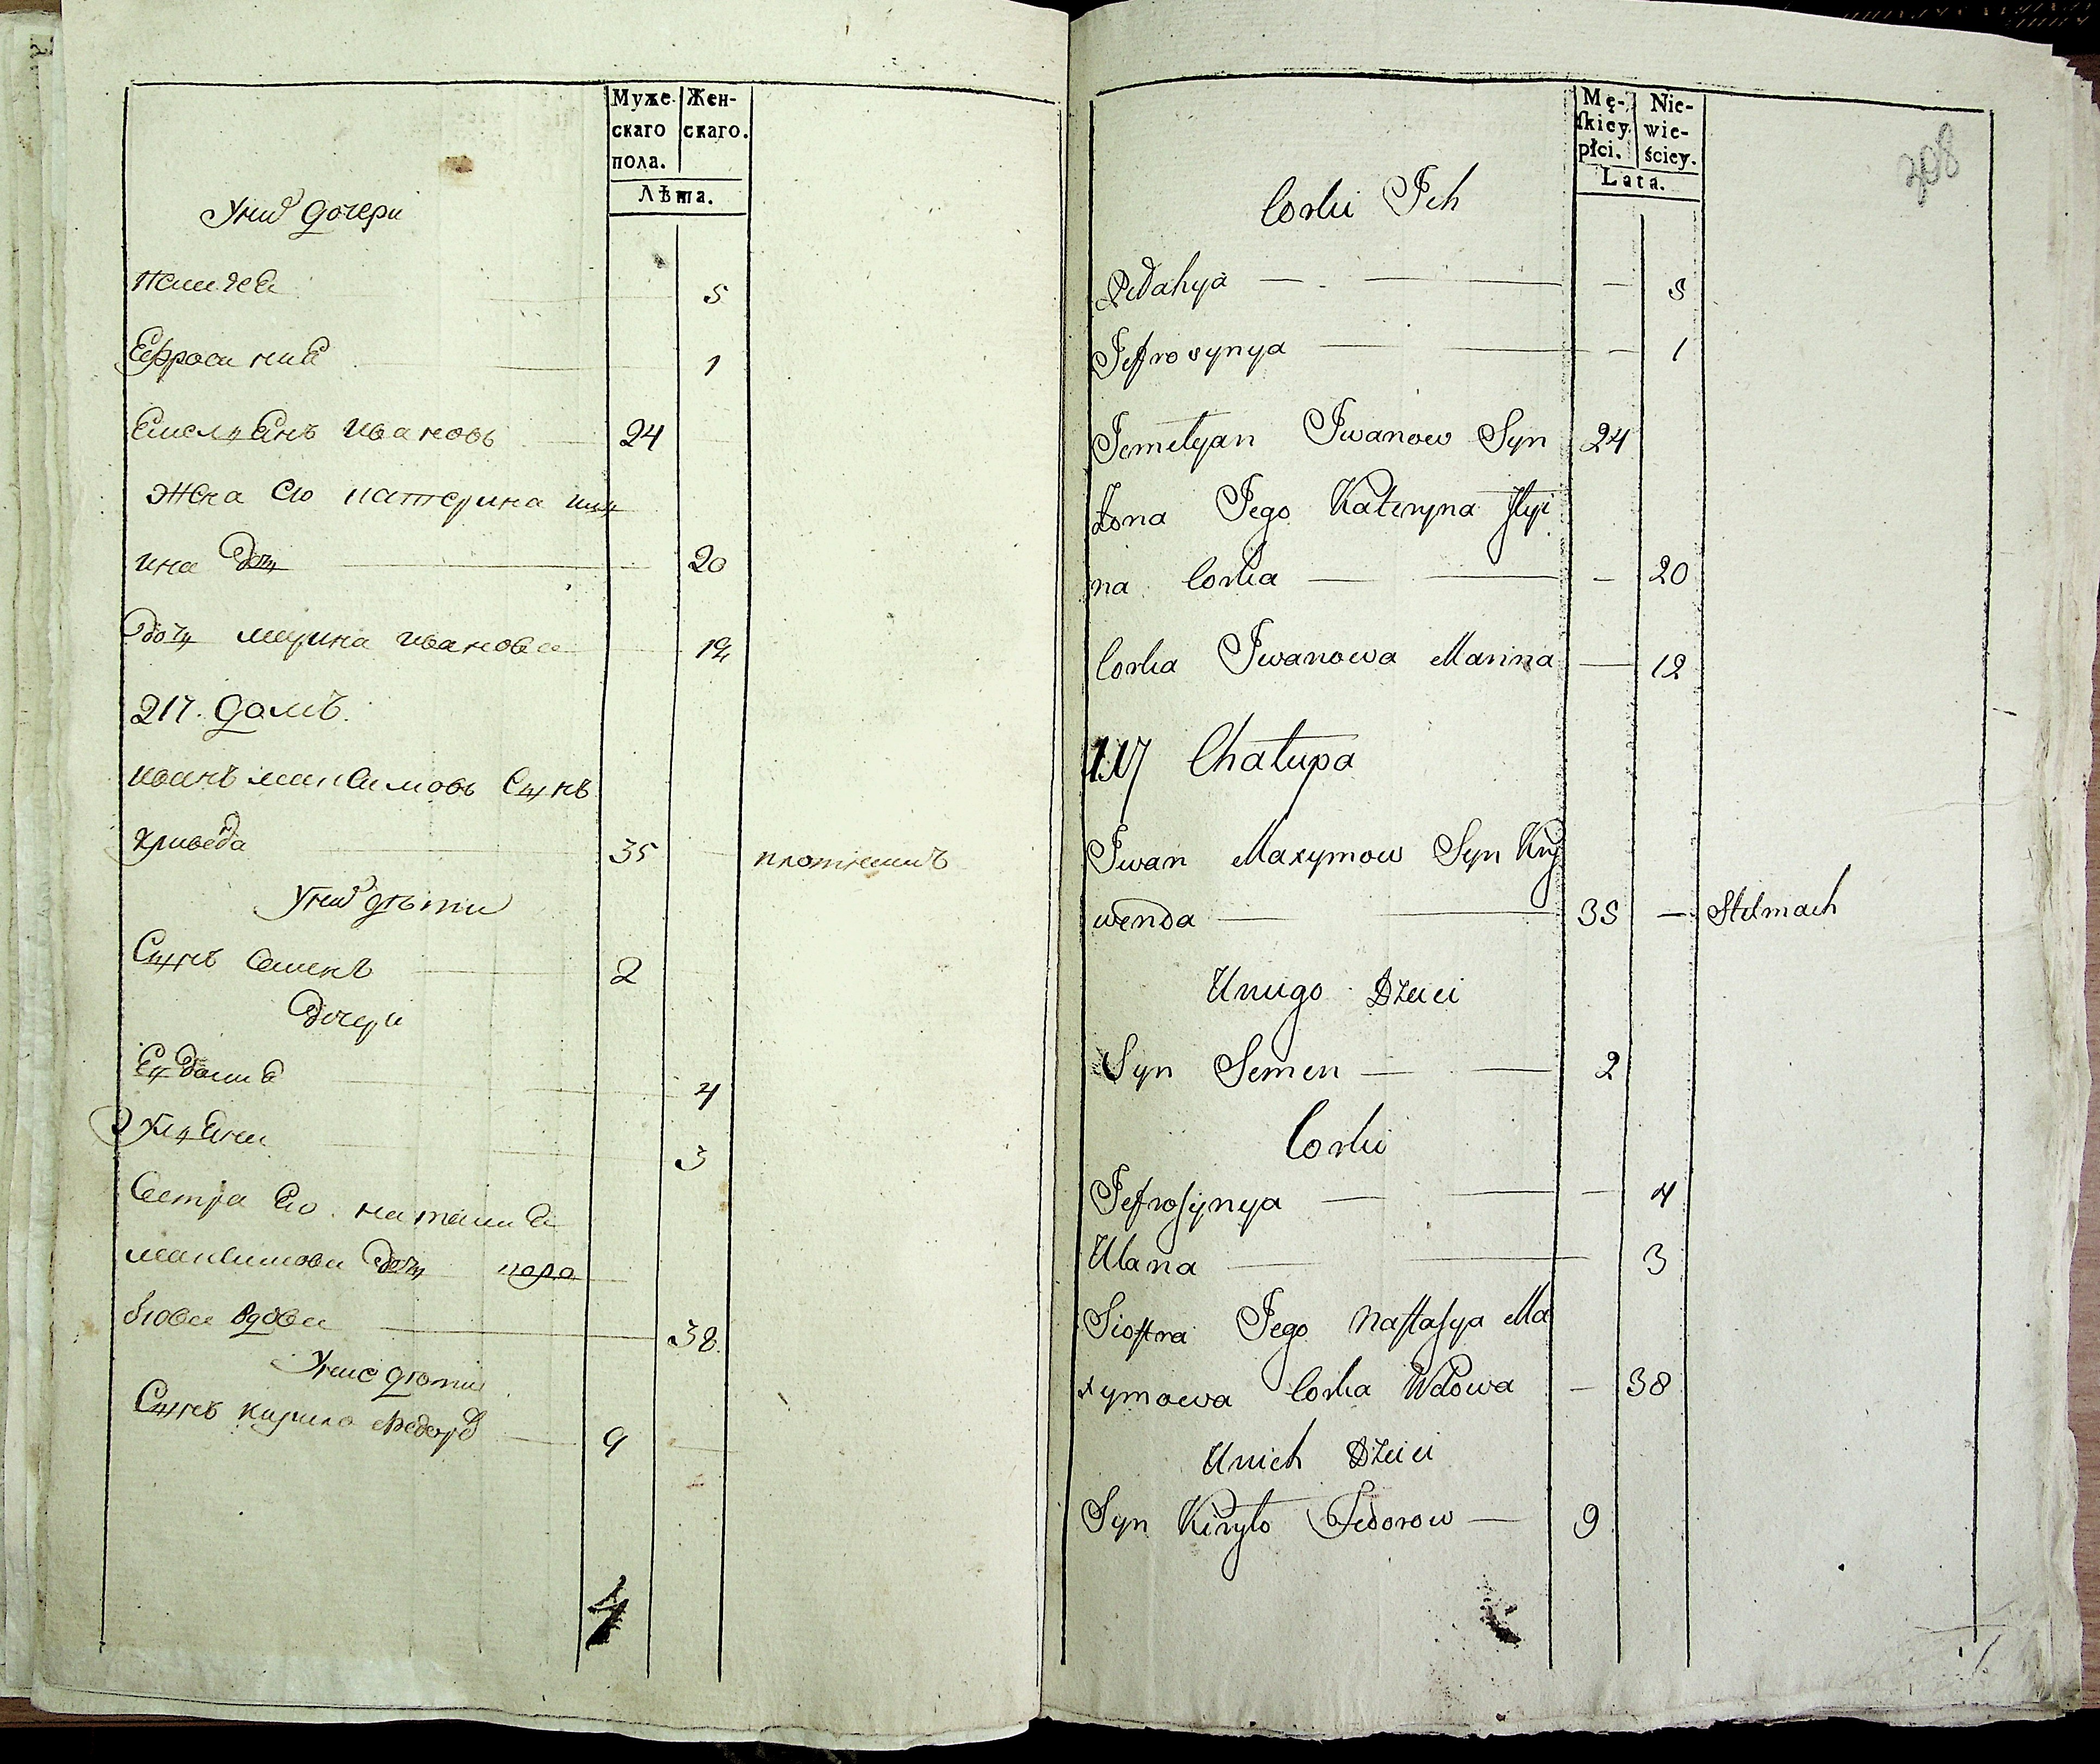 Муже- Жен-
скаго скаго.
пола.
Лѣта.
У них дочери
5
Ефросиния 1
Емелиянъ Ивановъ 24
Жена ево катерина или
ина дочь 20
дочь марина иванова 12
217. домъ.
иванъ максимовъ сынъ
криведа 35 плотникъ
У них дѣти
Сынъ семенъ 2
дочери
4
Улияна 3
Сестра ево настасия
максимова дочь
вдова 38
У ние дѣти
Сынъ кирило федоров 9
Mę- Nie-
ſkiey wie-
płci. ściey.
Lata.
308
Corki Ich
5
Jefrosynya — — — 1
Jemelyan Iwanow Syn 24
Żona Jego Kateryna Jlyi
na Corka — — — 20
Corka Iwanowa Marina — 12
217 Chałupa
Iwan Maxymow Syn Kry
wenda — — 35 — Stelmach
Uniego Dzieci
Syn Semen — — 2
Corki
Jefroſynya — — — 4
Ulana — — 3
Sioſtra Jego Naſtaſya Ma
xymowa Corka Wdowa — 38
Unich Dzieci
Syn Kiryło Fedorow — 9